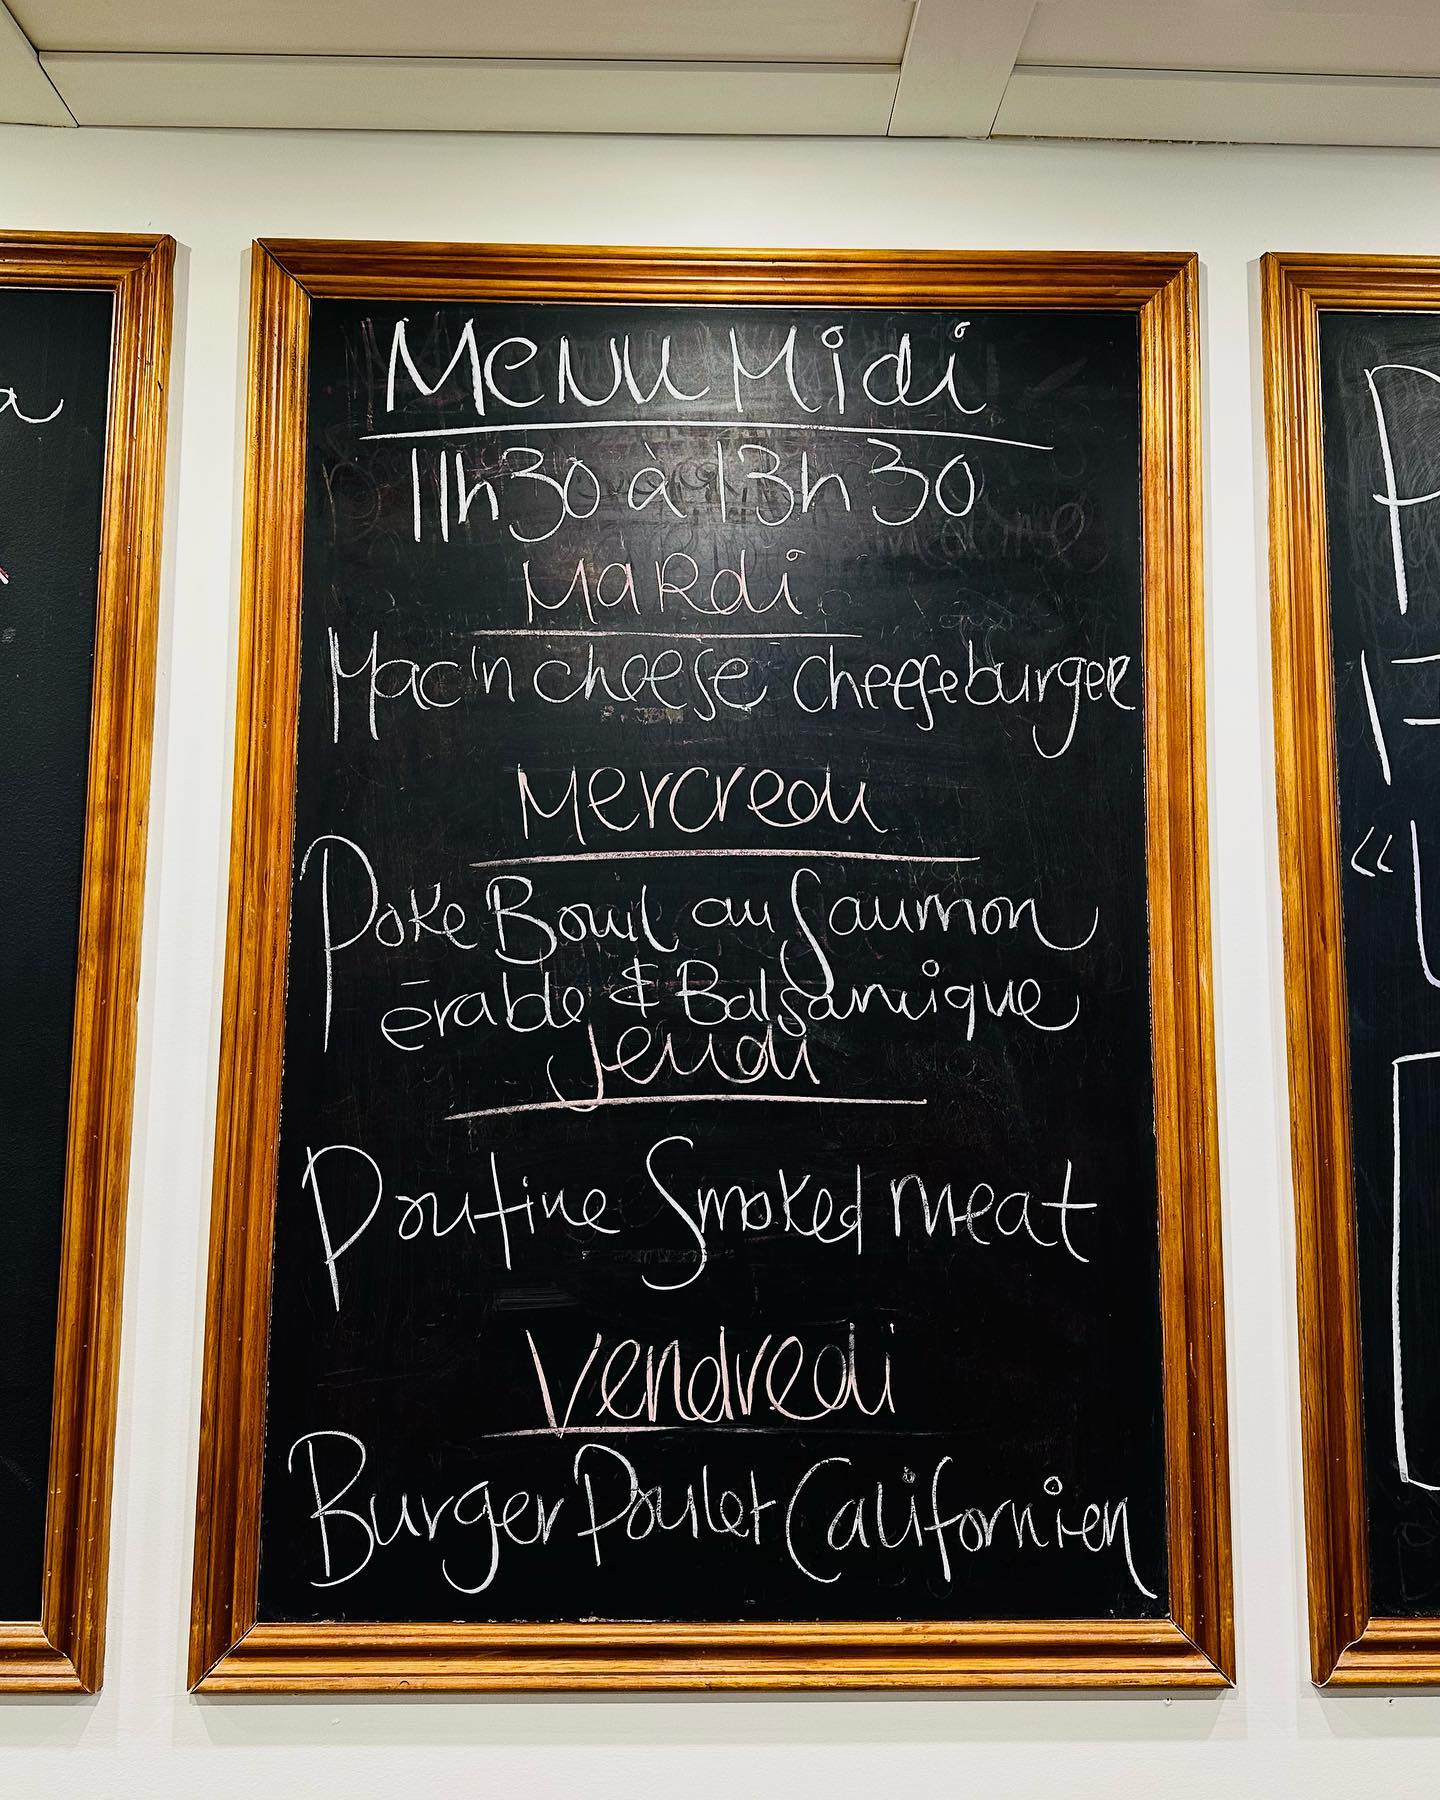 Menu Midi
11h30 à 13h30
Mardi
Mac'n cheese cheeseburger
Mercredi
Poke Bowl au Saumon
érable & Balsamique
Jeudi
Poutine Smoked meat
Vendredi
Burger Poulet Californien